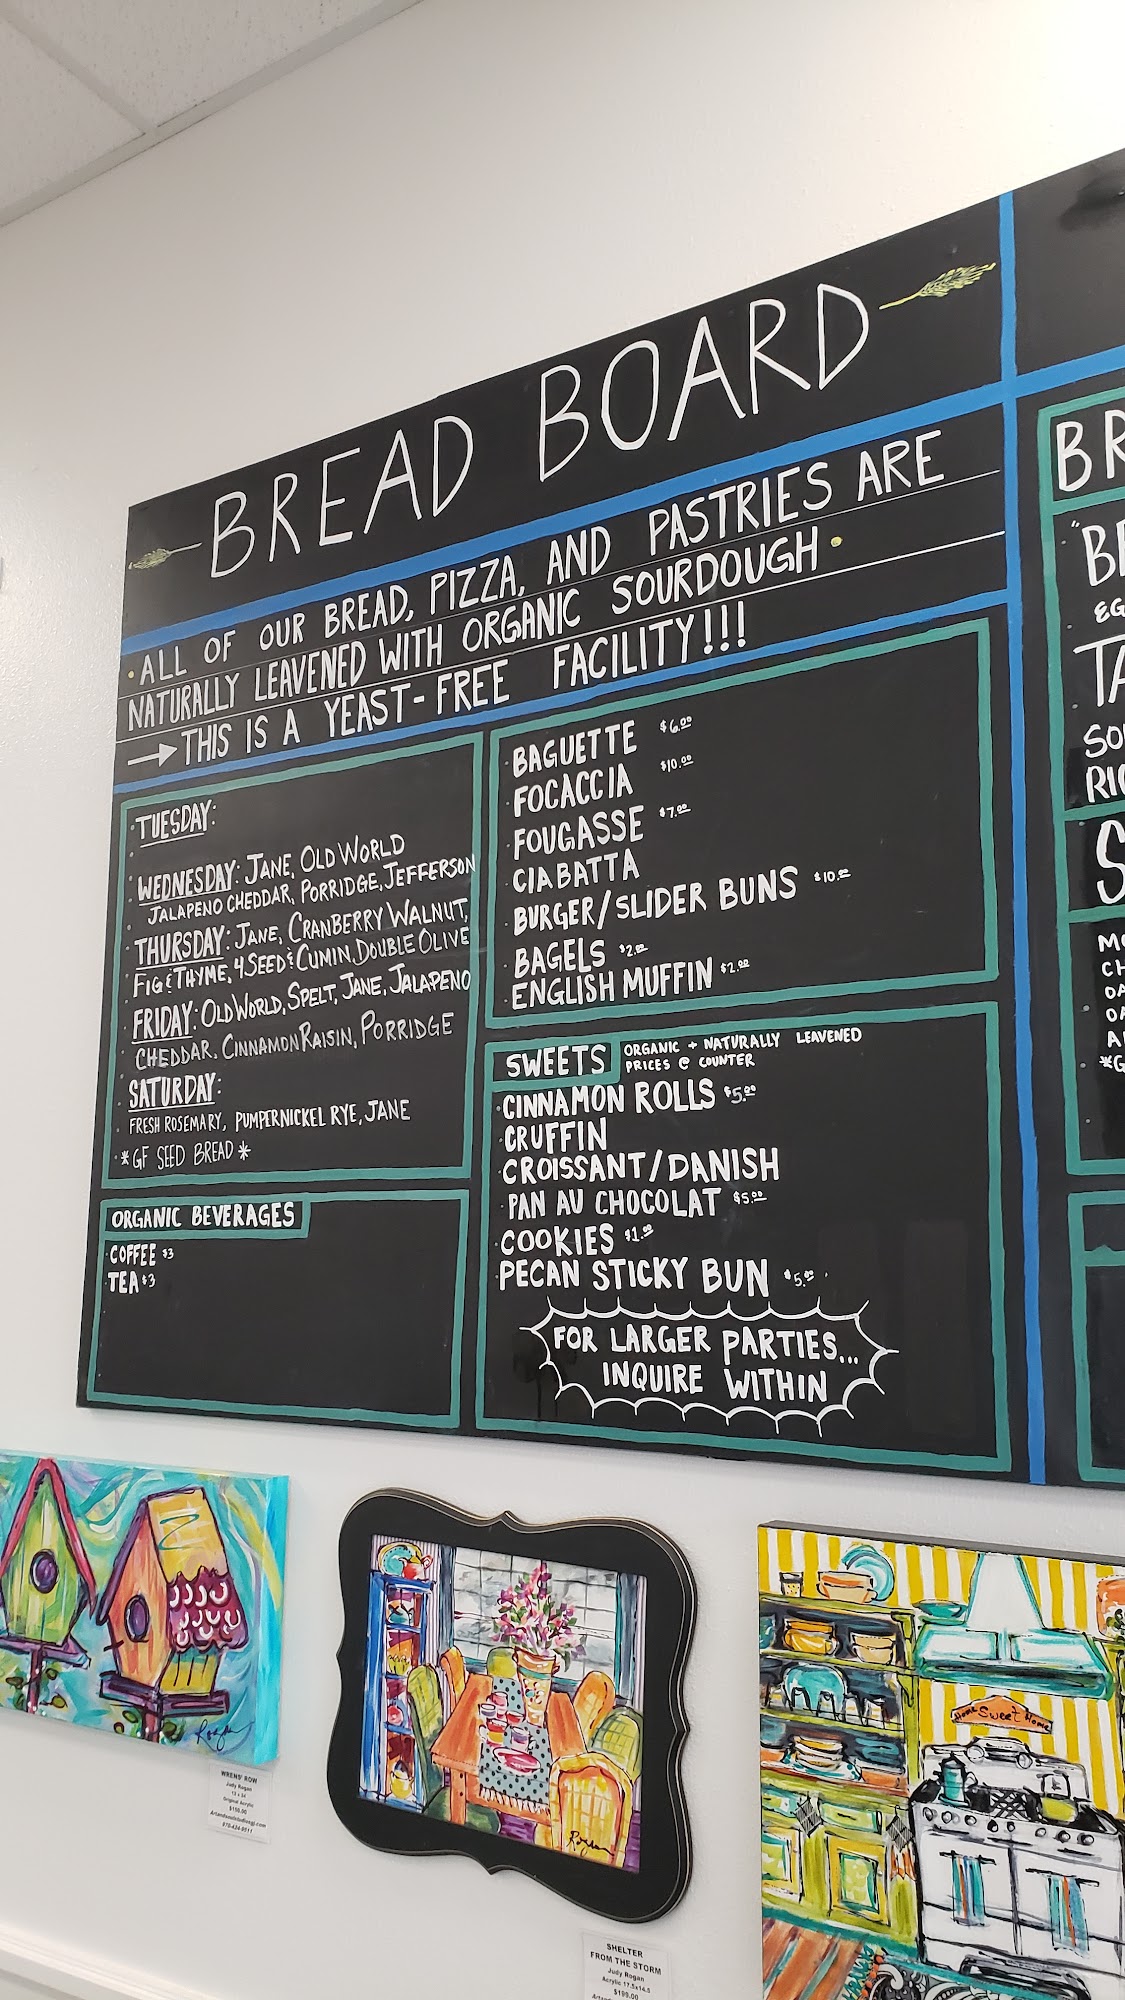 BREAD BOARD
·ALL OF OUR BREAD, PIZZA, AND PASTRIES ARE
NATURALLY LEAVENED WITH ORGANIC SOURDOUGH·
→THIS IS A YEAST-FREE FACILITY!!!
TUESDAY:
WEDNESDAY: JANE, OLD WORLD
JALAPENO CHEDDAR, PORRIDGE, JEFFERSON
THURSDAY: JANE, CRANBERRY WALNUT,
FIG & THYME, 4 SEED & CUMIN, DOUBLE OLIVE
FRIDAY: OLD WORLD, SPELT, JANE, JALAPENO
CHEDDAR, CINNAMON RAISIN, PORRIDGE
SATURDAY:
FRESH ROSEMARY, PUMPERNICKEL RYE, JANE
*GF SEED BREAD*
ORGANIC BEVERAGES
COFFEE $3
TEA $3
BAGUETTE $6.00
FOCACCIA $10.00
FOUGASSE $7.00
CIABATTA
BURGER/SLIDER BUNS $10.00
BAGELS $2.00
ENGLISH MUFFIN $2.00
SWEETS ORGANIC + NATURALLY LEAVENED
PRICES @ COUNTER
CINNAMON ROLLS $5.00
CRUFFIN
CROISSANT/DANISH
PAN AU CHOCOLAT $5.00
COOKIES $1.00
PECAN STICKY BUN $5.00
FOR LARGER PARTIES...
INQUIRE WITHIN
BR
"BE
EG
TA
SO
RIC
S
MO
CH
OA
OA
A
*G
Rogan
WRENS' ROW
Judy Rogan
12 x 24
Original Acrylic
$150.00
Rogan
SHELTER
FROM THE STORM
Judy Rogan
Acrylic 17.5x14.5
$199.00
Home Sweet Home